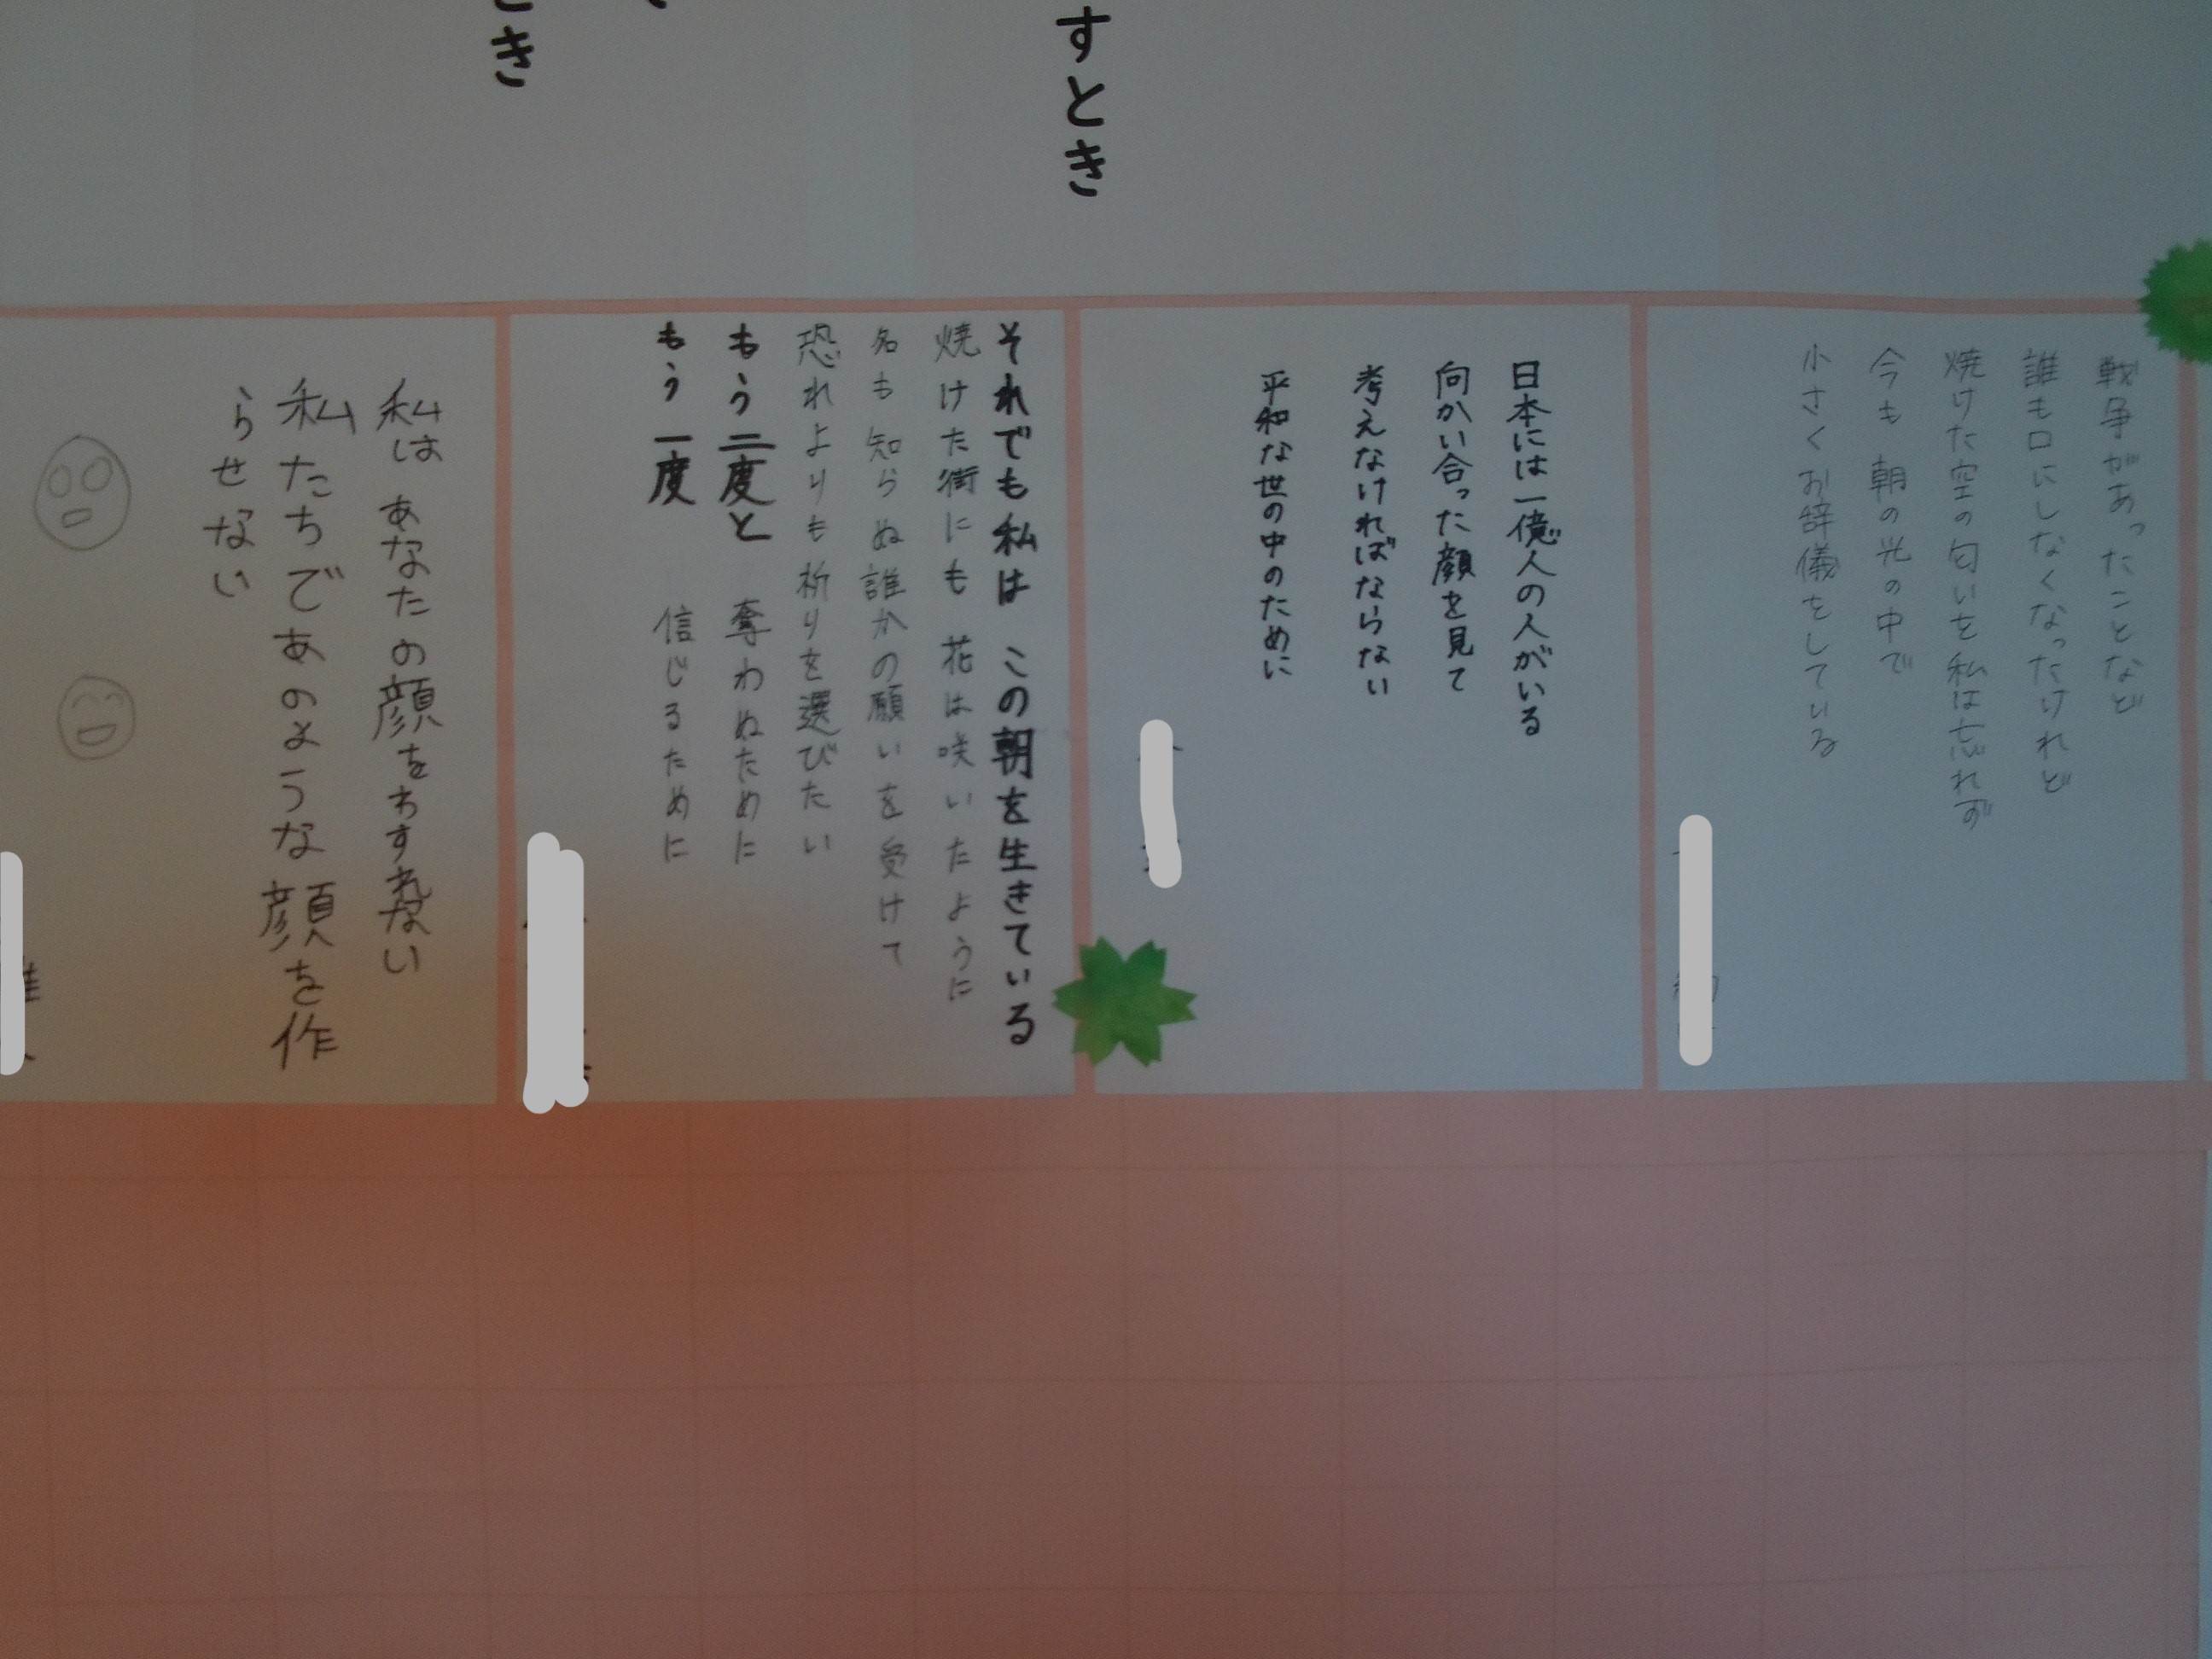 すとき
とき
戦争があったことなど
誰も口にしなくなったけれど
焼けた空の匂いを私は忘れず
今も朝の光の中で
小さくお辞儀をしている
日本には一億人の人がいる
向かい合った顔を見て
考えなければならない
平和な世の中のために
それでも私は この朝を生きている
焼けた街にも 花は咲いたように
名も知らぬ誰かの願いを受けて
恐れよりも祈りを選びたい
もう二度と 奪わぬために
もう一度 信じるために
私は あなたの顔をわすれない
私たちであのような顔を作
らせない